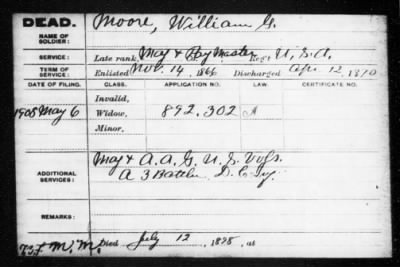 DEAD.
NAME OF SOLDIER:
Moore, William G.
SERVICE:
Late rank, Maj & Pay Master Reg't U.S.A.
TERM OF SERVICE:
Enlisted Nov. 14, 1866 Discharged Apr. 12, 1870
DATE OF FILING. CLASS. APPLICATION NO. LAW. CERTIFICATE NO.
Invalid,
1908 May 6 Widow, 892.302
Minor,
ADDITIONAL SERVICES:
Maj & A.A.G. U.S. Vols.
A 3 Battln D.C.
REMARKS:
M.M. Died July 12, 1898, at